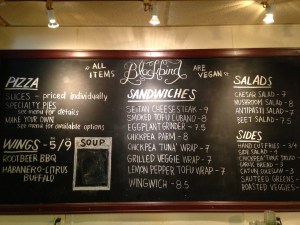 * ALL ITEMS
Blackbird
ARE VEGAN *
PIZZA
SLICES - priced individually
SPECIALTY PIES
see menu for details
MAKE YOUR OWN
see menu for available options
WINGS - 5/9
ROOTBEER BBQ
HABANERO-CITRUS
BUFFALO
SOUP
SANDWICHES
SEITAN CHEESESTEAK - 9
SMOKED TOFU CUBANO - 8
EGGPLANT GRINDER - 7.5
CHICKPEA PARM - 8
CHICKPEA 'TUNA' WRAP - 7
GRILLED VEGGIE WRAP - 7
LEMON PEPPER TOFU WRAP - 7
WINGWICH - 8.5
SALADS
CAESAR SALAD - 7
MUSHROOM SALAD - 8
ANTIPASTI SALAD - 7
BEET SALAD - 7.5
SIDES
HAND CUT FRIES - 3/4
SIDE SALAD - 4
CHICKPEA 'TUNA' SALAD
GARLIC BREAD - 3
CAJUN COLESLAW -
SAUTEED GREENS -
ROASTED VEGGIES -